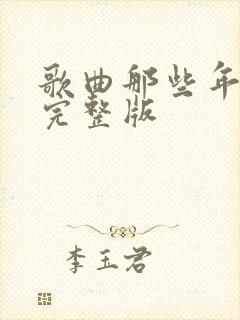 歌曲那些年
完整版
李玉君